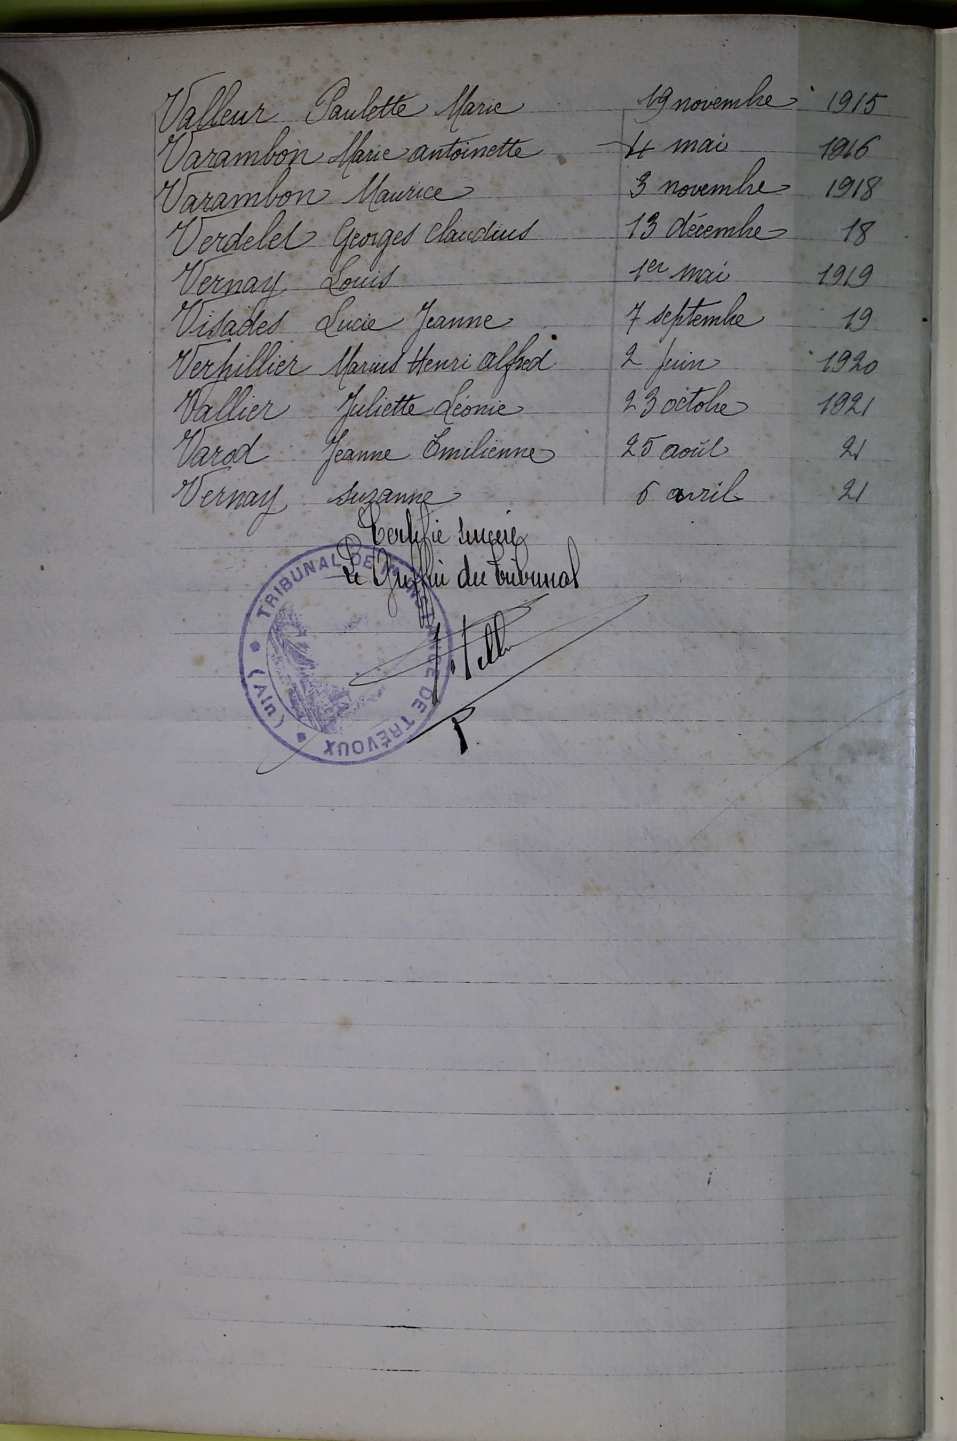 Valleur Paulette Marie 19 novembre 1915
Varambon Marie antoinette 4 mai 1916
Varambon Maurice 3 novembre 1918
Verdelet Georges Claudius 13 décembre 18
Vernay Louis 1er mai 1919
Visades Lucie Jeanne 7 septembre 19
Verhillier Marius Henri Alfred 2 Juin 1920
Vallier Juliette Léonie 23 octobre 1921
Varod Jeanne Emilienne 25 août 21
Vernay Suzanne 6 avril 21
Certifié sincère
Le Greffier du Tribunal
TRIBUNAL DE 1re INSTANCE DE TRÉVOUX (AIN)